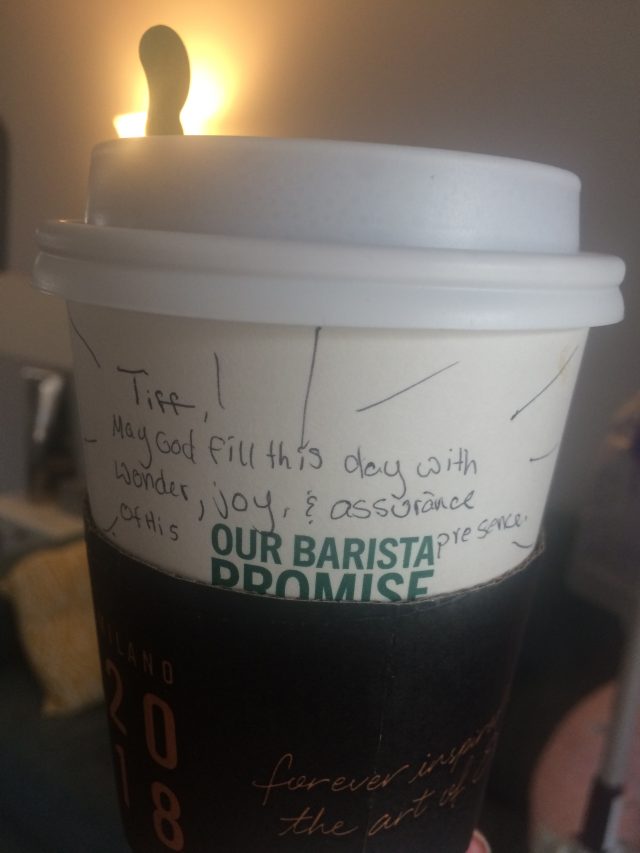 Tiff,
May God fill this day with
wonder, joy, & assurance
of His presence.
OUR BARISTA
PROMISE
MILANO
20
18
forever
the art of